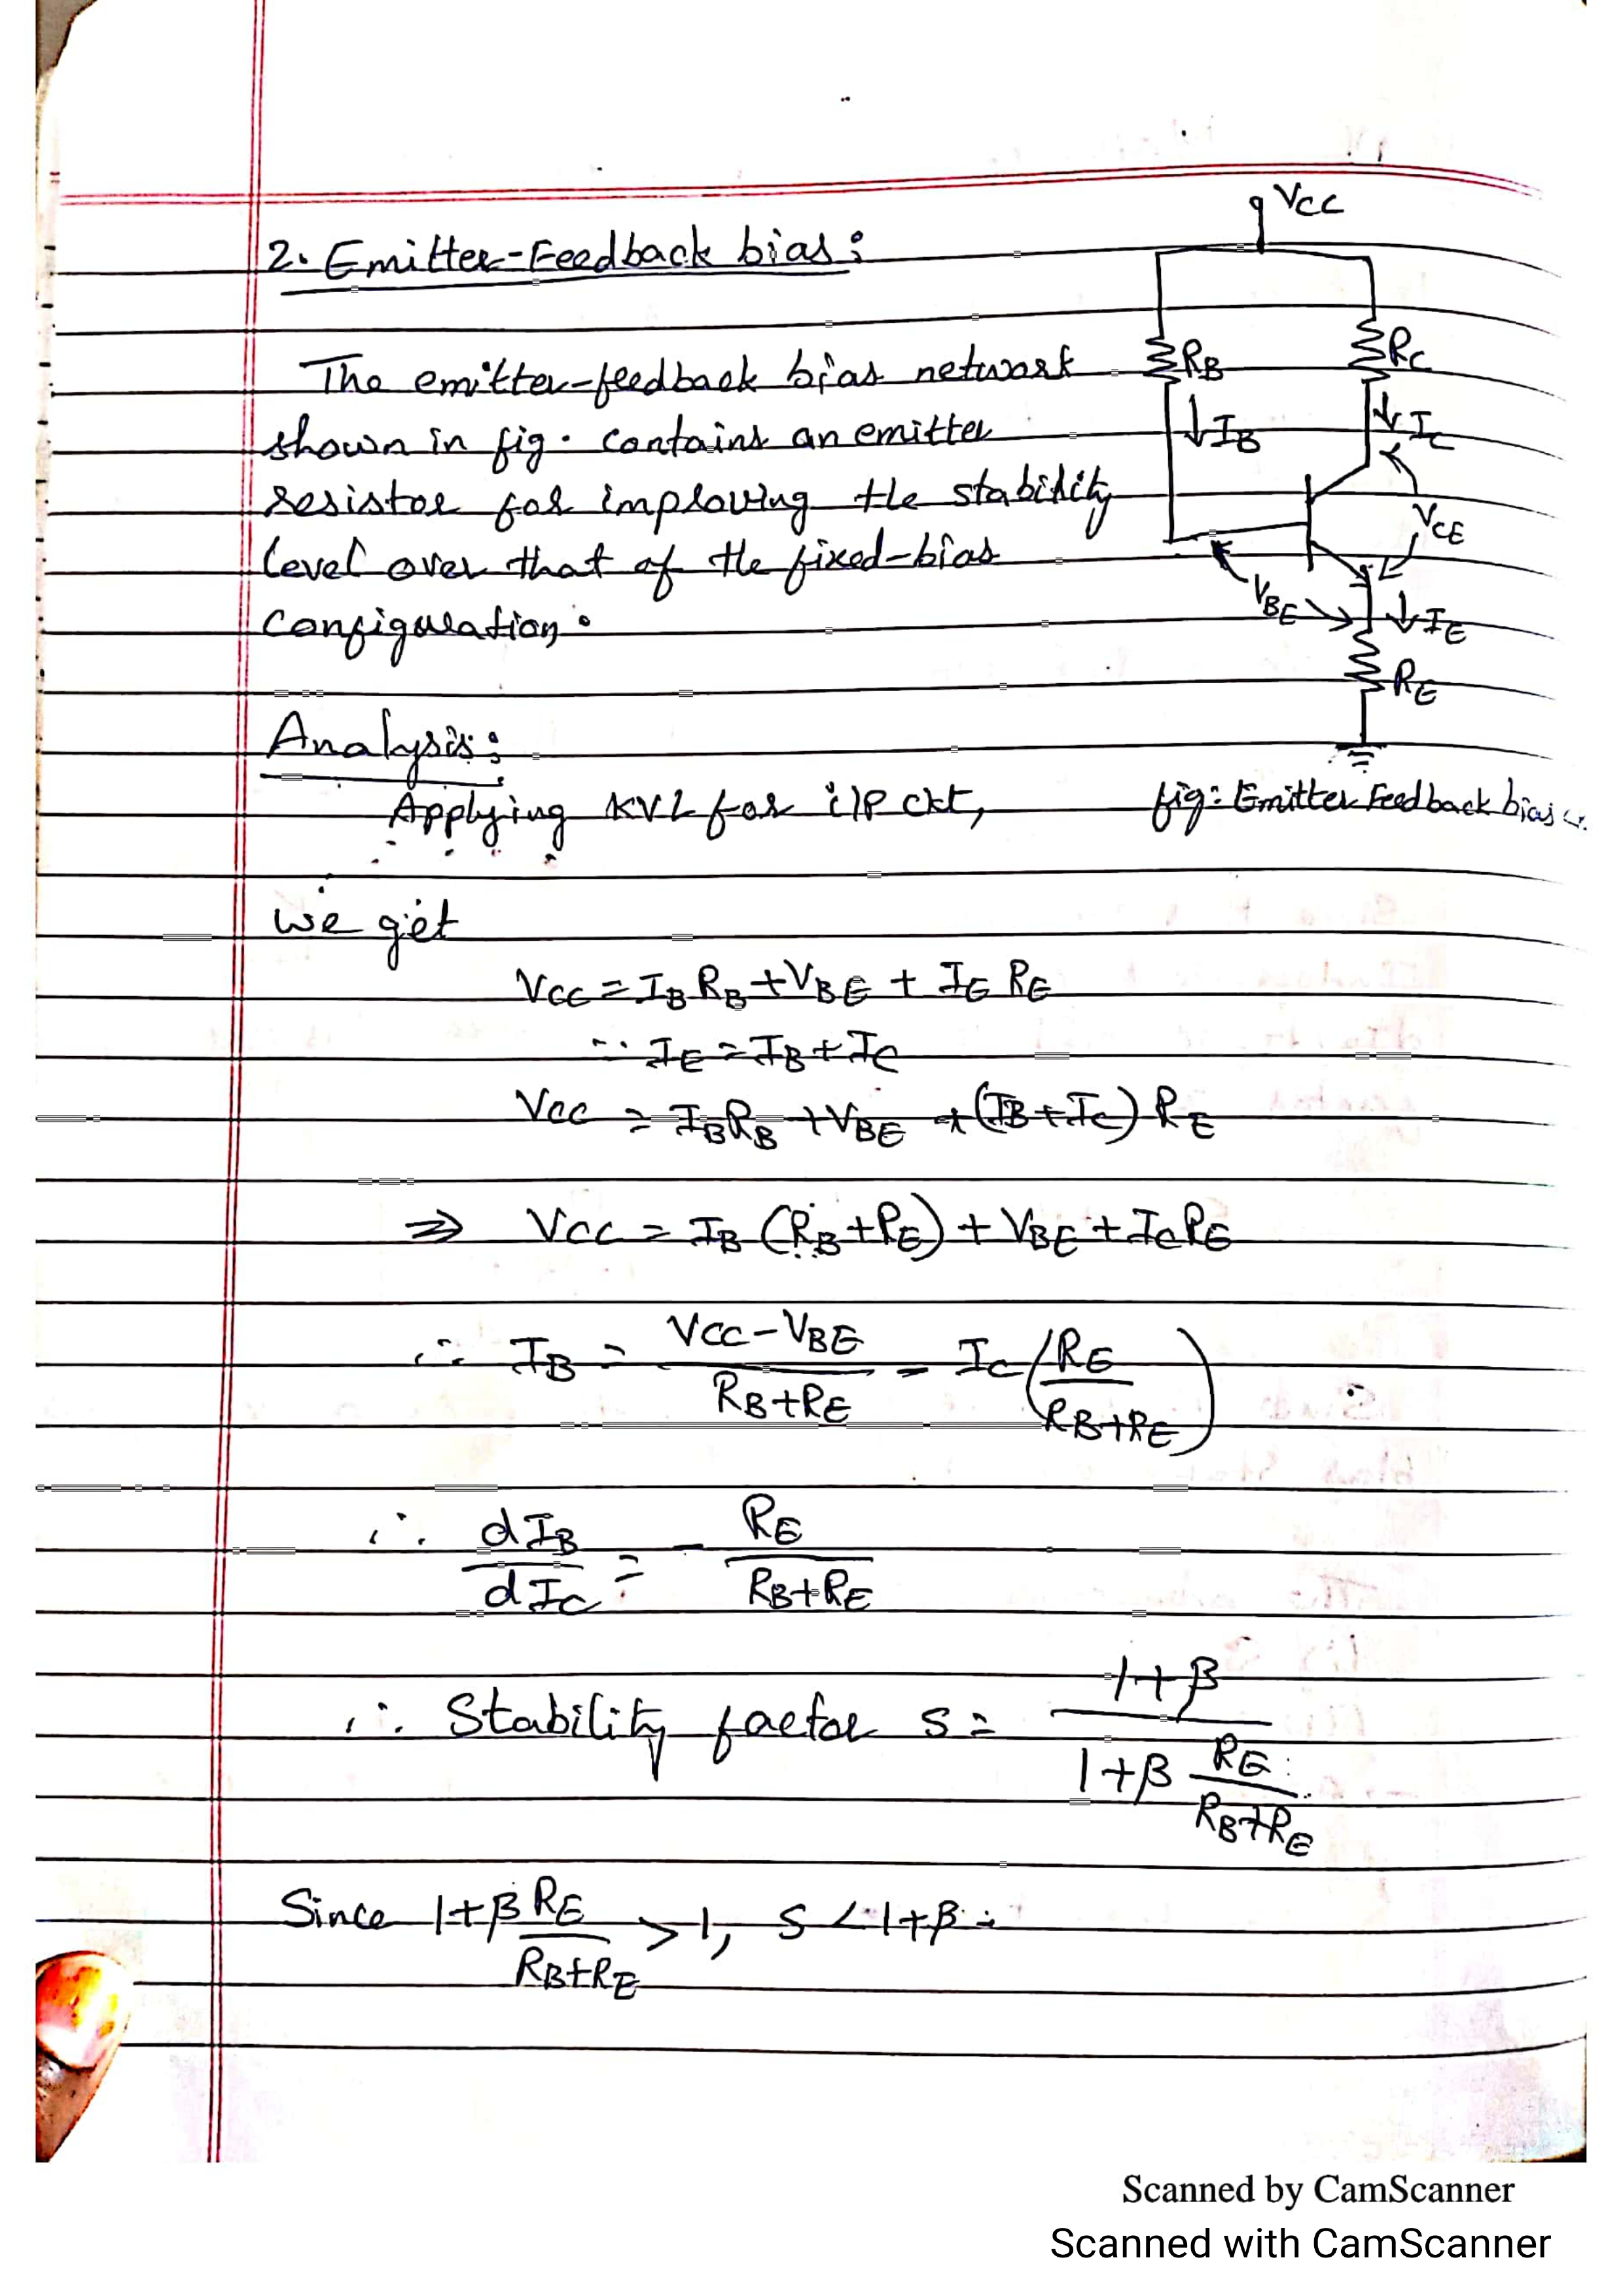 2. Emitter-Feedback bias:
The emitter-feedback bias network
shown in fig. contains an emitter
resistor for improving the stability
level over that of the fixed-bias
configuration.
VCC
RB
RC
IB
IC
VCE
VBE
IE
RE
fig: Emitter Feedback bias
Analysis:
Applying KVL for i/p ckt,
we get
VCC = IB RB + VBE + IE RE
∵ IE = IB + IC
VCC = IBRB + VBE + (IB + IC) RE
⇒ VCC = IB (RB + RE) + VBE + IC RE
∴ IB = (VCC - VBE)/(RB + RE) - IC (RE/(RB + RE))
∴ dIB/dIC = - RE/(RB + RE)
∴ Stability factor S = (1 + β)/(1 + β RE/(RB + RE))
Since 1 + β RE/(RB + RE) > 1, S < 1 + β.
Scanned by CamScanner
Scanned with CamScanner